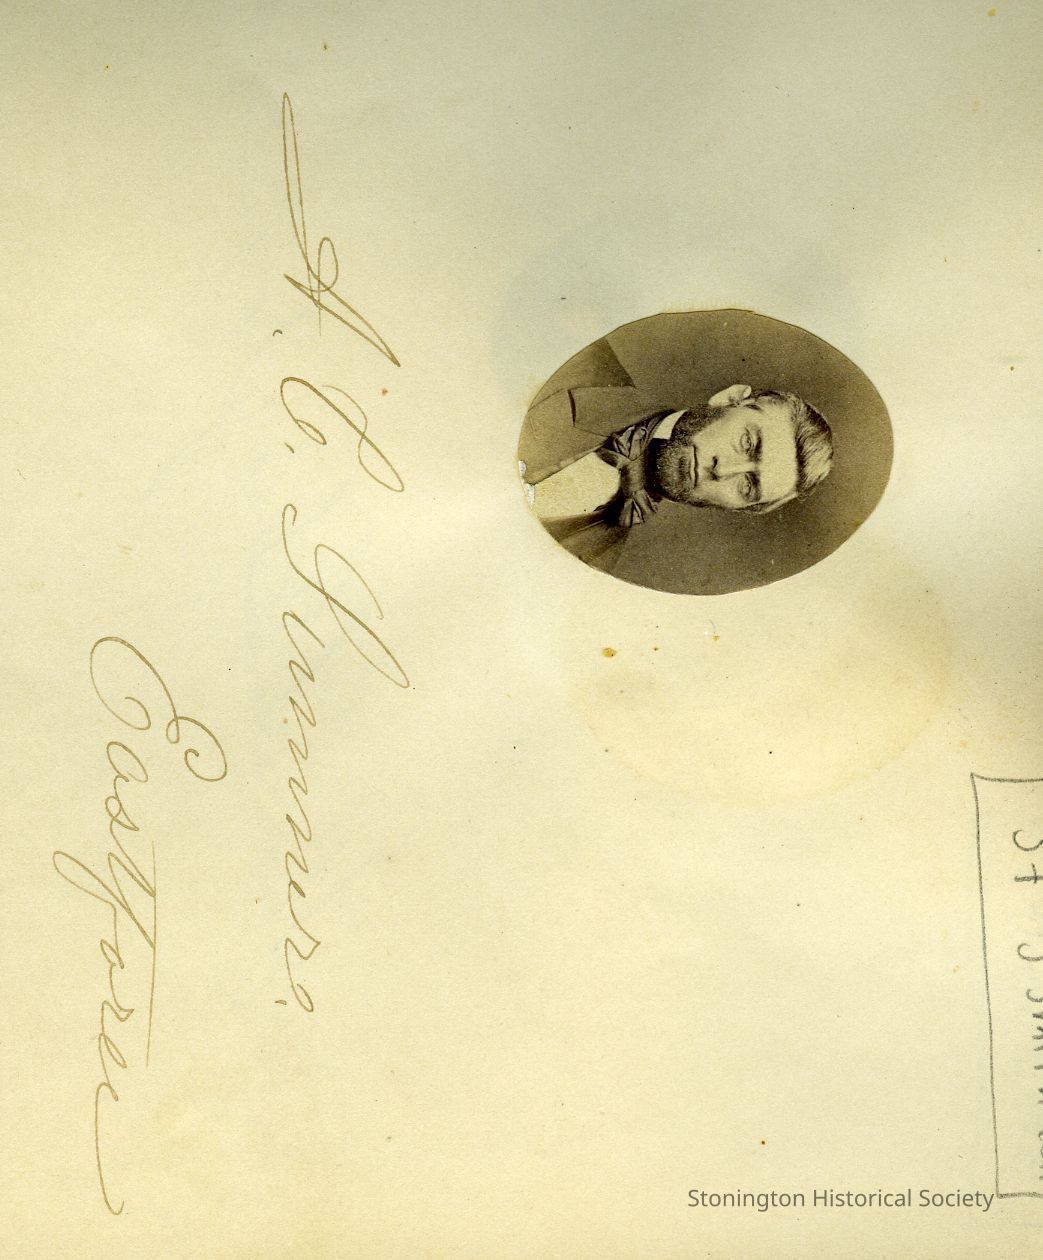 A. C. Sumner,
Eastford
Stonington Historical Society